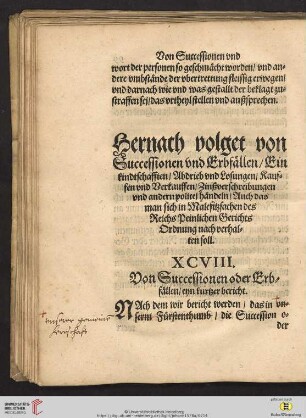 Von Successionen vnd
wort der personen so geschmächt worden/ vnd an-
dere vmbstände der vbertrettung fleissig erwegen/
vnd darnach wie vnd was gestallt der beklagt zu-
straffen sei/ das vrtheyl stellen vnd außsprechen.
Hernach volget von
Successionen vnd Erbfällen/ Ein
kindtschafften/ Abdrieb vnd Losungen/ Kauf-
fen vnd Verkauffen/ Zinßverschreibungen
vnd andern politei händeln/ Auch das
man sich in Malefitzsachen des
Reichs Peinlichen Gerichts
Ordnung nach verhal-
ten soll.
XCVIII.
Von Successionen oder Erb-
fällen/ eyn kurtzer bericht.
NAch dem wir bericht werden/ das in vn-
serm Fürstenthumb/ die Succession o-
der